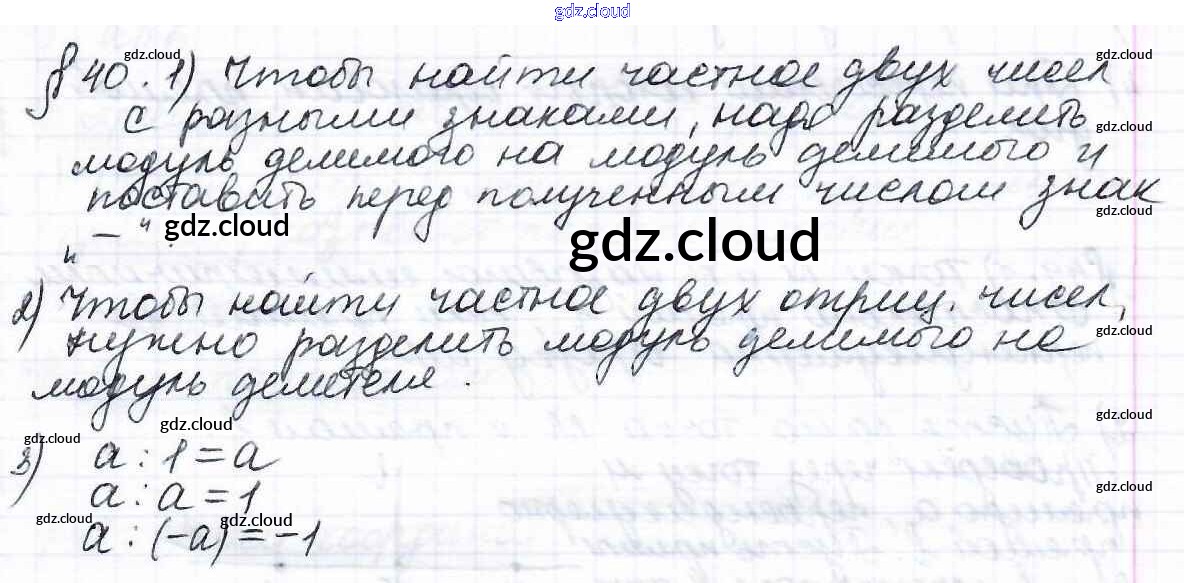 gdz.cloud
§ 40. 1) Чтобы найти частное двух чисел
с разными знаками, надо разделить
модуль делимого на модуль делимого и
поставить перед полученным числом знак
„ — “.
2) Чтобы найти частное двух отриц. чисел,
нужно разделить модуль делимого на
модуль делителя.
3) a : 1 = a
a : a = 1
a : (-a) = -1
gdz.cloud
gdz.cloud
gdz.cloud
gdz.cloud
gdz.cloud
gdz.cloud
gdz.cloud
gdz.cloud
gdz.cloud
gdz.cloud
gdz.cloud
gdz.cloud
gdz.cloud